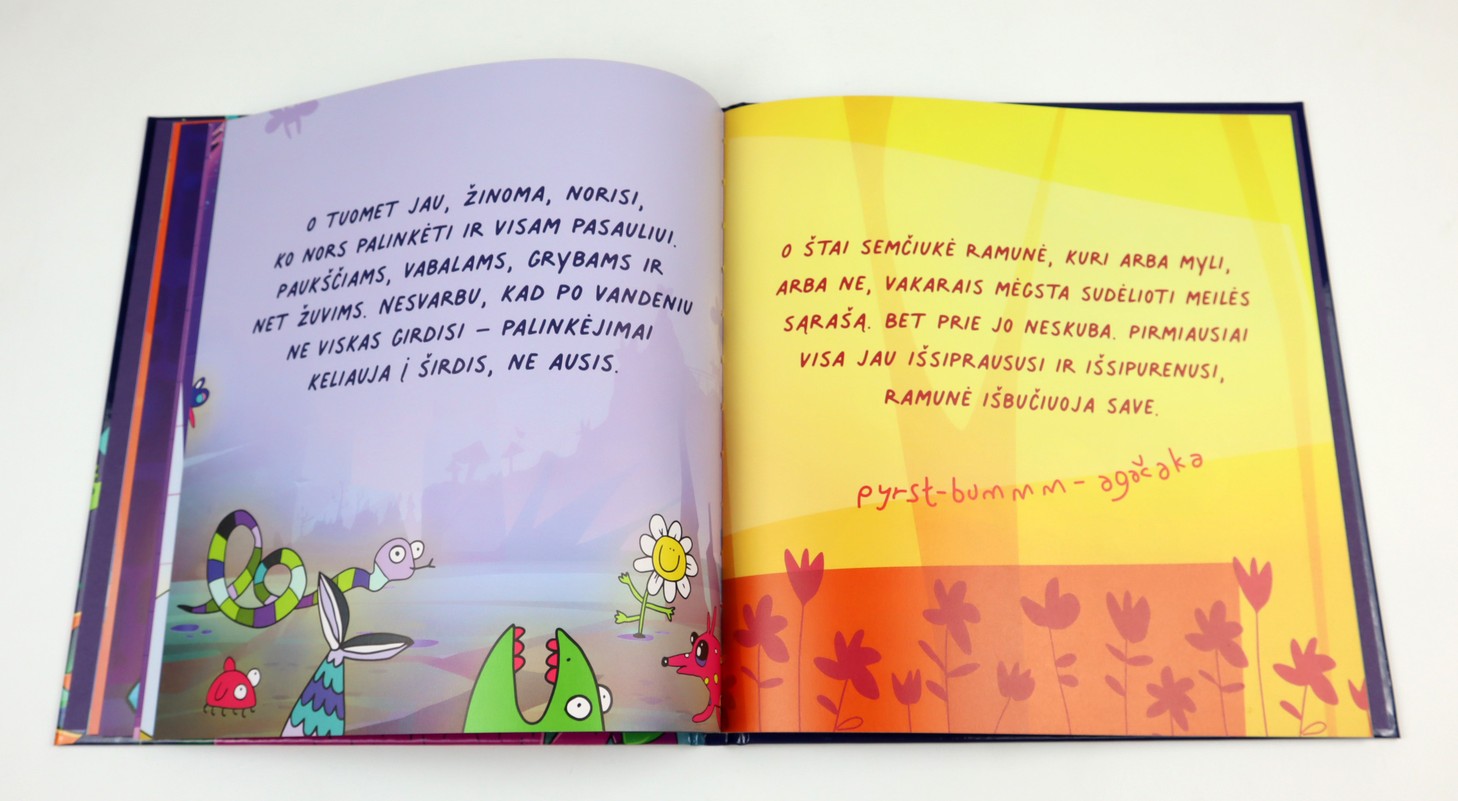 O TUOMET JAU, ŽINOMA, NORISI,
KO NORS PALINKĖTI IR VISAM PASAULIUI.
PAUKŠČIAMS, VABALAMS, GRYBAMS IR
NET ŽUVIMS. NESVARBU, KAD PO VANDENIU
NE VISKAS GIRDISI – PALINKĖJIMAI
KELIAUJA Į ŠIRDIS, NE AUSIS.
O ŠTAI SEMČIUKĖ RAMUNĖ, KURI ARBA MYLI,
ARBA NE, VAKARAIS MĖGSTA SUDĖLIOTI MEILĖS
SĄRAŠĄ. BET PRIE JO NESKUBA. PIRMIAUSIAI
VISA JAU IŠSIPRAUSUSI IR IŠSIPURENUSI,
RAMUNĖ IŠBUČIUOJA SAVE.
pyrst-bummm-agačaka